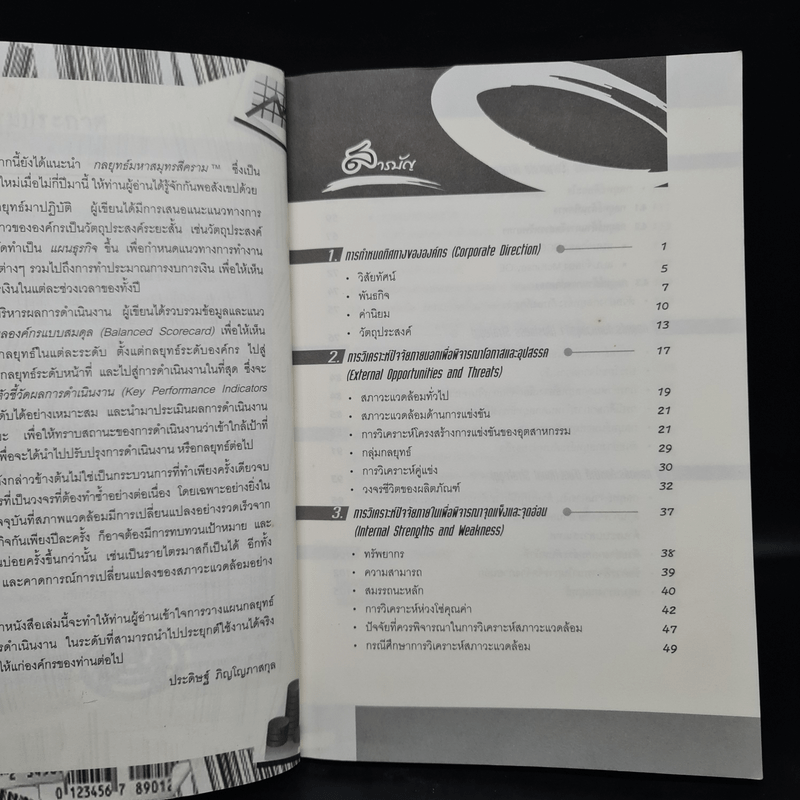 ากนี้ยังได้แนะนำ กลยุทธ์มหาสมุทรสีคราม™ ซึ่งเป็น
ใหม่เมื่อไม่กี่ปีมานี้ ให้ท่านผู้อ่านได้รู้จักกันพอสังเขปด้วย
ลยุทธ์มาปฏิบัติ ผู้เขียนได้มีการเสนอแนะแนวทางการ
าวขององค์กรเป็นวัตถุประสงค์ระยะสั้น เช่นวัตถุประสงค์
ัดทำเป็น แผนธุรกิจ ขึ้น เพื่อกำหนดแนวทางการทำงาน
ต่างๆ รวมไปถึงการทำประมาณการงบการเงิน เพื่อให้เห็น
งินในแต่ละช่วงเวลาของทั้งปี
ริหารผลการดำเนินงาน ผู้เขียนได้รวบรวมข้อมูลและแนว
ลองค์กรแบบสมดุล (Balanced Scorecard) เพื่อให้เห็น
กลยุทธ์ในแต่ละระดับ ตั้งแต่กลยุทธ์ระดับองค์กร ไปสู่
กลยุทธ์ระดับหน้าที่ และไปสู่การดำเนินงานในที่สุด ซึ่งจะ
ตัวชี้วัดผลการดำเนินงาน (Key Performance Indicators
ดับได้อย่างเหมาะสม และนำมาประเมินผลการดำเนินงาน
ะ เพื่อให้ทราบสถานะของการดำเนินงานว่าเข้าใกล้เป้าที่
พื่อจะได้นำไปปรับปรุงการดำเนินงาน หรือกลยุทธ์ต่อไป
ังกล่าวข้างต้นไม่ใช่เป็นกระบวนการที่ทำเพียงครั้งเดียวจบ
รที่เป็นวงจรที่ต้องทำซ้ำอย่างต่อเนื่อง โดยเฉพาะอย่างยิ่งใน
จจุบันที่สภาพแวดล้อมมีการเปลี่ยนแปลงอย่างรวดเร็วจาก
กิจกันเพียงปีละครั้ง ก็อาจต้องมีการทบทวนเป้าหมาย และ
นบ่อยครั้งขึ้นกว่านั้น เช่นเป็นรายไตรมาสก็เป็นได้ อีกทั้ง
และคาดการณ์การเปลี่ยนแปลงของสภาวะแวดล้อมอย่าง
าหนังสือเล่มนี้จะทำให้ท่านผู้อ่านเข้าใจการวางแผนกลยุทธ์
รดำเนินงาน ในระดับที่สามารถนำไปประยุกต์ใช้งานได้จริง
ให้แก่องค์กรของท่านต่อไป
ประดิษฐ์ ภิญโญภาสกุล
0 123456 7 8901
สารบัญ
1. การกำหนดทิศทางขององค์กร (Corporate Direction) 1
• วิสัยทัศน์ 5
• พันธกิจ 7
• ค่านิยม 10
• วัตถุประสงค์ 13
2. การวิเคราะห์ปัจจัยภายนอกเพื่อพิจารณาโอกาสและอุปสรรค 17
(External Opportunities and Threats)
• สภาวะแวดล้อมทั่วไป 19
• สภาวะแวดล้อมด้านการแข่งขัน 21
• การวิเคราะห์โครงสร้างการแข่งขันของอุตสาหกรรม 21
• กลุ่มกลยุทธ์ 29
• การวิเคราะห์คู่แข่ง 30
• วงจรชีวิตของผลิตภัณฑ์ 32
3. การวิเคราะห์ปัจจัยภายในเพื่อพิจารณาจุดแข็งและจุดอ่อน 37
(Internal Strengths and Weakness)
• ทรัพยากร 38
• ความสามารถ 39
• สมรรถนะหลัก 40
• การวิเคราะห์ห่วงโซ่คุณค่า 42
• ปัจจัยที่ควรพิจารณาในการวิเคราะห์สภาวะแวดล้อม 47
• กรณีศึกษาการวิเคราะห์สภาวะแวดล้อม 49